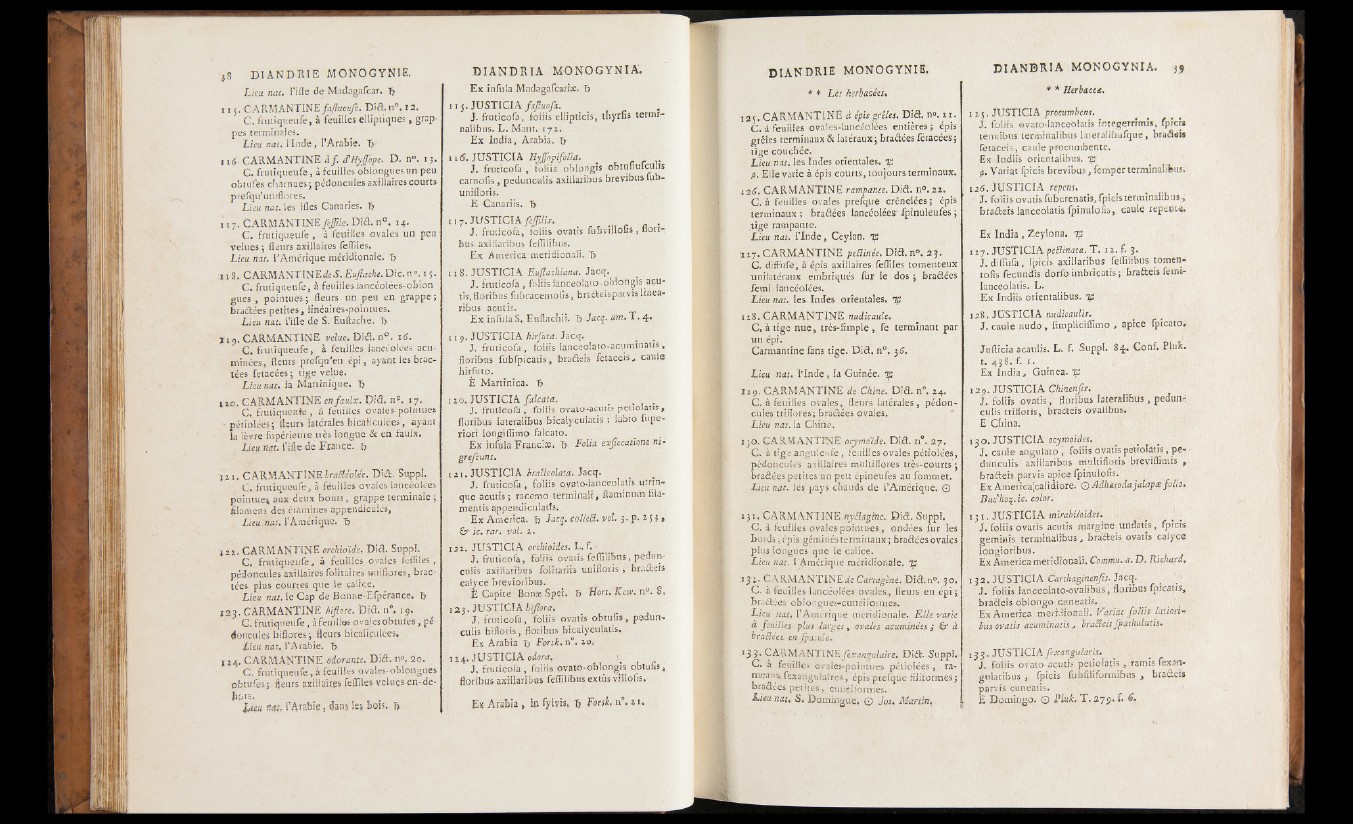 38 DIANDRIE MONOGYNIE.
Lieu nat. l'iſle de Madagaſcar. ♄
115. CARMANTINE faſtueuſe. Dict. n°. 12.
C. frutiqueuſe, à feuilles elliptiques, grap-
pes terminales.
Lieu nat. l'Inde, l'Arabie. ♄
116 CARMANTINE à f. d'Hyſſope. D. n°. 13.
C. frutiqueuſe, à feuilles oblongues un peu
obtuſes charnues; pédoncules axillaires courts
preſqu'uniflores.
Lieu nat. les iſles Canaries. ♄
117. CARMANTINE ſeſſile. Dict. n°. 14.
C. frutiqueuſe, à feuilles ovales un peu
velues; fleurs axillaires ſeſſiles.
Lieu nat. l'Amérique méridionale. ♄
118. CARMANTINE de S. Euſtache. Dic. n°. 15.
C. frutiqueuſe, à feuilles lancéolées-oblon
gues, pointues; fleurs un peu en grappe;
bractées petites, linéaires-pointues.
Lieu nat. l'iſle de S. Euſtache. ♄
119. CARMANTINE velue. Dict. n°. 16.
C. frutiqueuſe, à feuilles lancéolées-acu-
minées, fleurs preſqu'en épi, ayant les brac-
tées ſetacées; tige velue.
Lieu nat. la Martinique. ♄
120. CARMANTINE en faulx. Dict. n°. 17.
C. frutiqueuſe, à feuilles ovales-pointues
pétiolées; fleurs latérales bicaliculées, ayant
la lèvre ſupérieure très longue & en faulx.
Lieu nat. l'iſle de France. ♄
121. CARMANTINE bractéolée. Dict. Suppl.
C. frutiqueuſe, à feuilles ovales lancéolées
pointues aux deux bouts, grappe terminale;
filamens des étamines appendiculés,
Lieu nat. l'Amérique. ♄
122. CARMANTINE orchioïde. Dict. Suppl.
C. frutiqueuſe, à feuilles ovales ſeſſiles,
pédoncules axillaires ſolitaires uniflores, brac-
tées plus courtes que le calice.
Lieu nat. le Cap de Bonne-Eſpérance. ♄
123. CARMANTINE biflore. Dict. n°. 19.
C. frutiqueuſe, à feuilles ovales obtuſes, pé-
doncules biflores; fleurs bicaliculées.
Lieu nat. l'Arabie. ♄
124. CARMANTINE odorante. Dict. n°. 20.
C. frutiqueuſe, à feuilles ovales-oblongues
obtuſes; fleurs axillaires ſeſſiles velues en-de-
hors.
Lieu nat. l'Arabie, dans les bois. ♄
DIANDRIA MONOGYNIA.
Ex inſula Madagaſcariæ. ♄
115. JUSTICIA faſtuoſa.
J. fruticoſa, foliis ellipticis, thyrſis termi-
nalibus. L. Mant. 172.
Ex India, Arabia. ♄
116. JUSTICIA Hyſſopifolia.
J. fruticoſa, foliis oblongis obtuſiuſculis
carnoſis, pedunculis axillaribus brevibus ſub-
unifloris.
E Canariis. ♄
117. JUSTICIA ſeſſilis.
J. fruticoſa, foliis ovatis ſubvilloſis, flori-
bus axillaribus ſeſſilibus.
Ex America meridionali. ♄
118. JUSTICIA Euſtachiana. Jacq.
J. fruticoſa, foliis lanceolato-oblongis acu-
tis, floribus ſubracemoſis, bracteis parvis linea-
ribus acutis.
Ex inſula S. Euſtachii. ♄ Jacq. am. T. 4.
119. JUSTICIA hirſuta. Jacq.
J. fruticoſa, foliis lanceolato-acuminatis,
floribus ſubſpicatis, bracteis ſetaceis, caule
hirſuto.
È Martinica. ♄
120. JUSTICIA falcata.
J. fruticoſa, foliis ovato-acutis petiolatis,
floribus lateralibus bicalyculatis: labio ſupe-
riori longiſſimo falcato.
Ex inſula Franciæ. ♄ Folia exſiccatione ni-
greſcunt.
121. JUSTICIA bracteolata. Jacq.
J. fruticoſa, foliis ovato-lanceolatis utrin-
que acutis; racemo terminali, ſtaminum fila-
mentis appendiculatis.
Ex America. ♄ Jacq. collect. vol. 3. p. 253,
& ic. rar. vol. 2.
122. JUSTICIA orchioides. L. f.
J. fruticoſa, foliis ovatis ſeſſilibus, pedun-
culis axillaribus ſolitariis unifloris, bracteis
calyce brevioribus.
È Capite Bonæ Spei. ♄ Hort. Kew. n°. 8.
123. JUSTICIA biflora.
J. fruticoſa, foliis ovatis obtuſis, pedun-
culis bifloris, floribus bicalyculatis.
Ex Arabia ♄ Forsk. n°. 20.
124. JUSTICIA odora.
J. fruticoſa, foliis ovato-oblongis obtuſis,
floribus axillaribus ſeſſilibus extùs villoſis.
Ex Arabia, in ſylvis. ♄ Forſk. n°. 21.
DIANDRIE MONOGYNIE.
* * Les herbacées.
125. CARMANTINE à épis grêles. Dict. n°. 21.
C. à feuilles ovales-lancéolées entières; épis
grêles terminaux & latéraux; bractées ſétacées;
tige couchée.
Lieu nat. les Indes orientales. ♃
β. Elle varie à épis courts, toujours terminaux.
126. CARMANTINE rampante. Dict. n°. 22.
C. à feuilles ovales preſque crénelées; épis
terminaux; bractées lancéolées ſpinuleuſes;
tige rampante.
Lieu nat. l'Inde, Ceylan. ♃
127. CARMANTINE pectinée. Dict. n°. 23.
C. diffuſe, à épis axillaires ſeſſiles tomenteux
unilatéraux embriqués ſur le dos; bractées
ſemi-lancéolées.
Lieu nat. les Indes orientales. ♃
128. CARMANTINE nudicaule.
C. à tige nue, très-ſimple, ſe terminant par
un épi.
Carmantine ſans tige. Dict. n°. 36.
Lieu nat. l'Inde, la Guinée. ♃
129. CARMANTINE de Chine. Dict. n°. 24.
C. à feuilles ovales, fleurs latérales, pédon-
cules triflores; bractées ovales.
Lieu nat. la Chine.
130. CARMANTINE ocymoïde. Dict. n°. 27.
C. à tige anguleuſe, feuilles ovales pétiolées,
pédoncules axillaires multiflores très-courts;
bractées petites un peu épineuſes au ſommet.
Lieu nat. les pays chauds de l'Amérique. ☉
131. CARMANTINE nyctagine. Dict. Suppl.
C. à feuilles ovales pointues, ondées ſur les
bords; épis géminés terminaux; bractées ovales
plus longues que le calice.
Lieu nat. l'Amérique méridionale. ♃
132. CARMANTINE de Cartagène. Dict. n°. 30.
C. à feuilles lancéolées ovales, fleurs en épi;
bractées oblongues-cunéiformes.
Lieu nat. l'Amérique méridionale. Elle varie
à feuilles plus larges, ovales acuminées; & à
bractées en ſpatule.
133. CARMANTINE ſexangulaire. Dict. Suppl.
C. à feuilles ovales-pointues pétiolées, ra-
meaux ſexangulaires, épis preſque filiformes;
bractées petites, cunéiformes.
Lieu nat. S. Domingue. ☉ Jos. Martin.
DIANDRIA MONOGYNIA. 39
* * Herbaceæ.
125. JUSTICIA procumbens.
J. foliis ovato-lanceolatis integerrimis, ſpicis
tenuibus terminalibus lateralibuſque, bracteis
ſetaceis, caule procumbente.
Ex Indiis orientalibus. ♃
β. Variat ſpicis brevibus, ſemper terminalibus.
126. JUSTICIA repens.
J. foliis ovatis ſubcrenatis, ſpicis terminalibus,
bracteis lanceolatis ſpinuloſis, caule repente.
Ex India, Zeylona. ♃
127. JUSTICIA pectinata. T. 12. f. 3.
J. diffuſa, ſpicis axillaribus ſeſſilibus tomen-
toſis ſecundis dorſo imbricatis; bracteis ſemi-
lanceolatis. L.
Ex Indiis orientalibus. ♃
128. JUSTICIA nudicaulis.
J. caule nudo, ſimpliciſſimo, apice ſpicato.
Juſticia acaulis. L. f. Suppl. 84. Conf. Pluk.
t. 438. f. 1.
Ex India, Guinea. ♃
129. JUSTICIA Chinenſis.
J. foliis ovatis, floribus lateralibus, pedun-
culis trifloris, bracteis ovalibus.
E China.
130. JUSTICIA ocymoides.
J. caule angulato, foliis ovatis petiolatis, pe-
dunculis axillaribus multifloris breviſſimis,
bracteis parvis apice ſpinuloſis.
Ex America calidiore. ☉ Adhatoda jalapæ folio.
Buc'hoz. ic. color.
131. JUSTICIA mirabiloides.
J. foliis ovatis acutis margine undatis, ſpicis
geminis terminalibus, bracteis ovatis calyce
longioribus.
Ex America meridionali. Commu. a. D. Richard.
132. JUSTICIA Carthaginenſis. Jacq.
J. foliis lanceolato-ovalibus, floribus ſpicatis,
bracteis oblongo-cuneatis.
Ex America meridionali. Variat foliis latiori-
bus ovatis acuminatis, bracteis ſpathulatis.
133. JUSTICIA ſexangularis.
J. foliis ovato acutis petiolatis, ramis ſexan-
gularibus, ſpicis ſubfiliformibus, bracteis
parvis cuneatis.
E Domingo. ☉ Pluk. T. 279. f. 6.